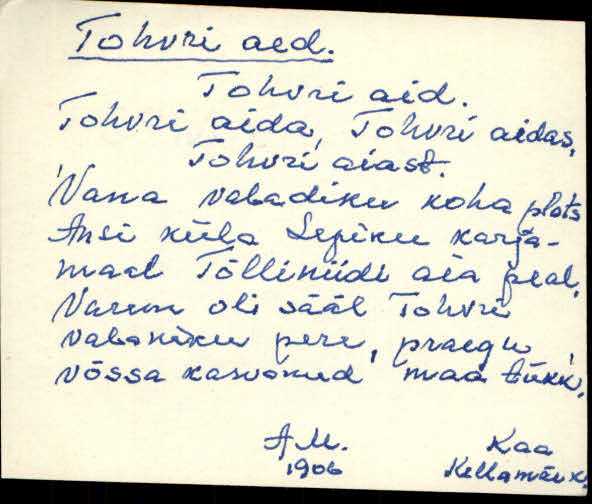 Tohvri aed.
Tohvri aid.
Tohvri aida, Tohvri aidas,
Tohvri aiast.
Vana vabadiku koha plats
Ansi küla Lepiku karja-
maal Tõlliniidi aia peal.
Varem oli sääl Tohvri
vabaniku pere, praegu
võssa kasvanud maa tükk.
A.M. Kaa
1906 Kellamäe k.